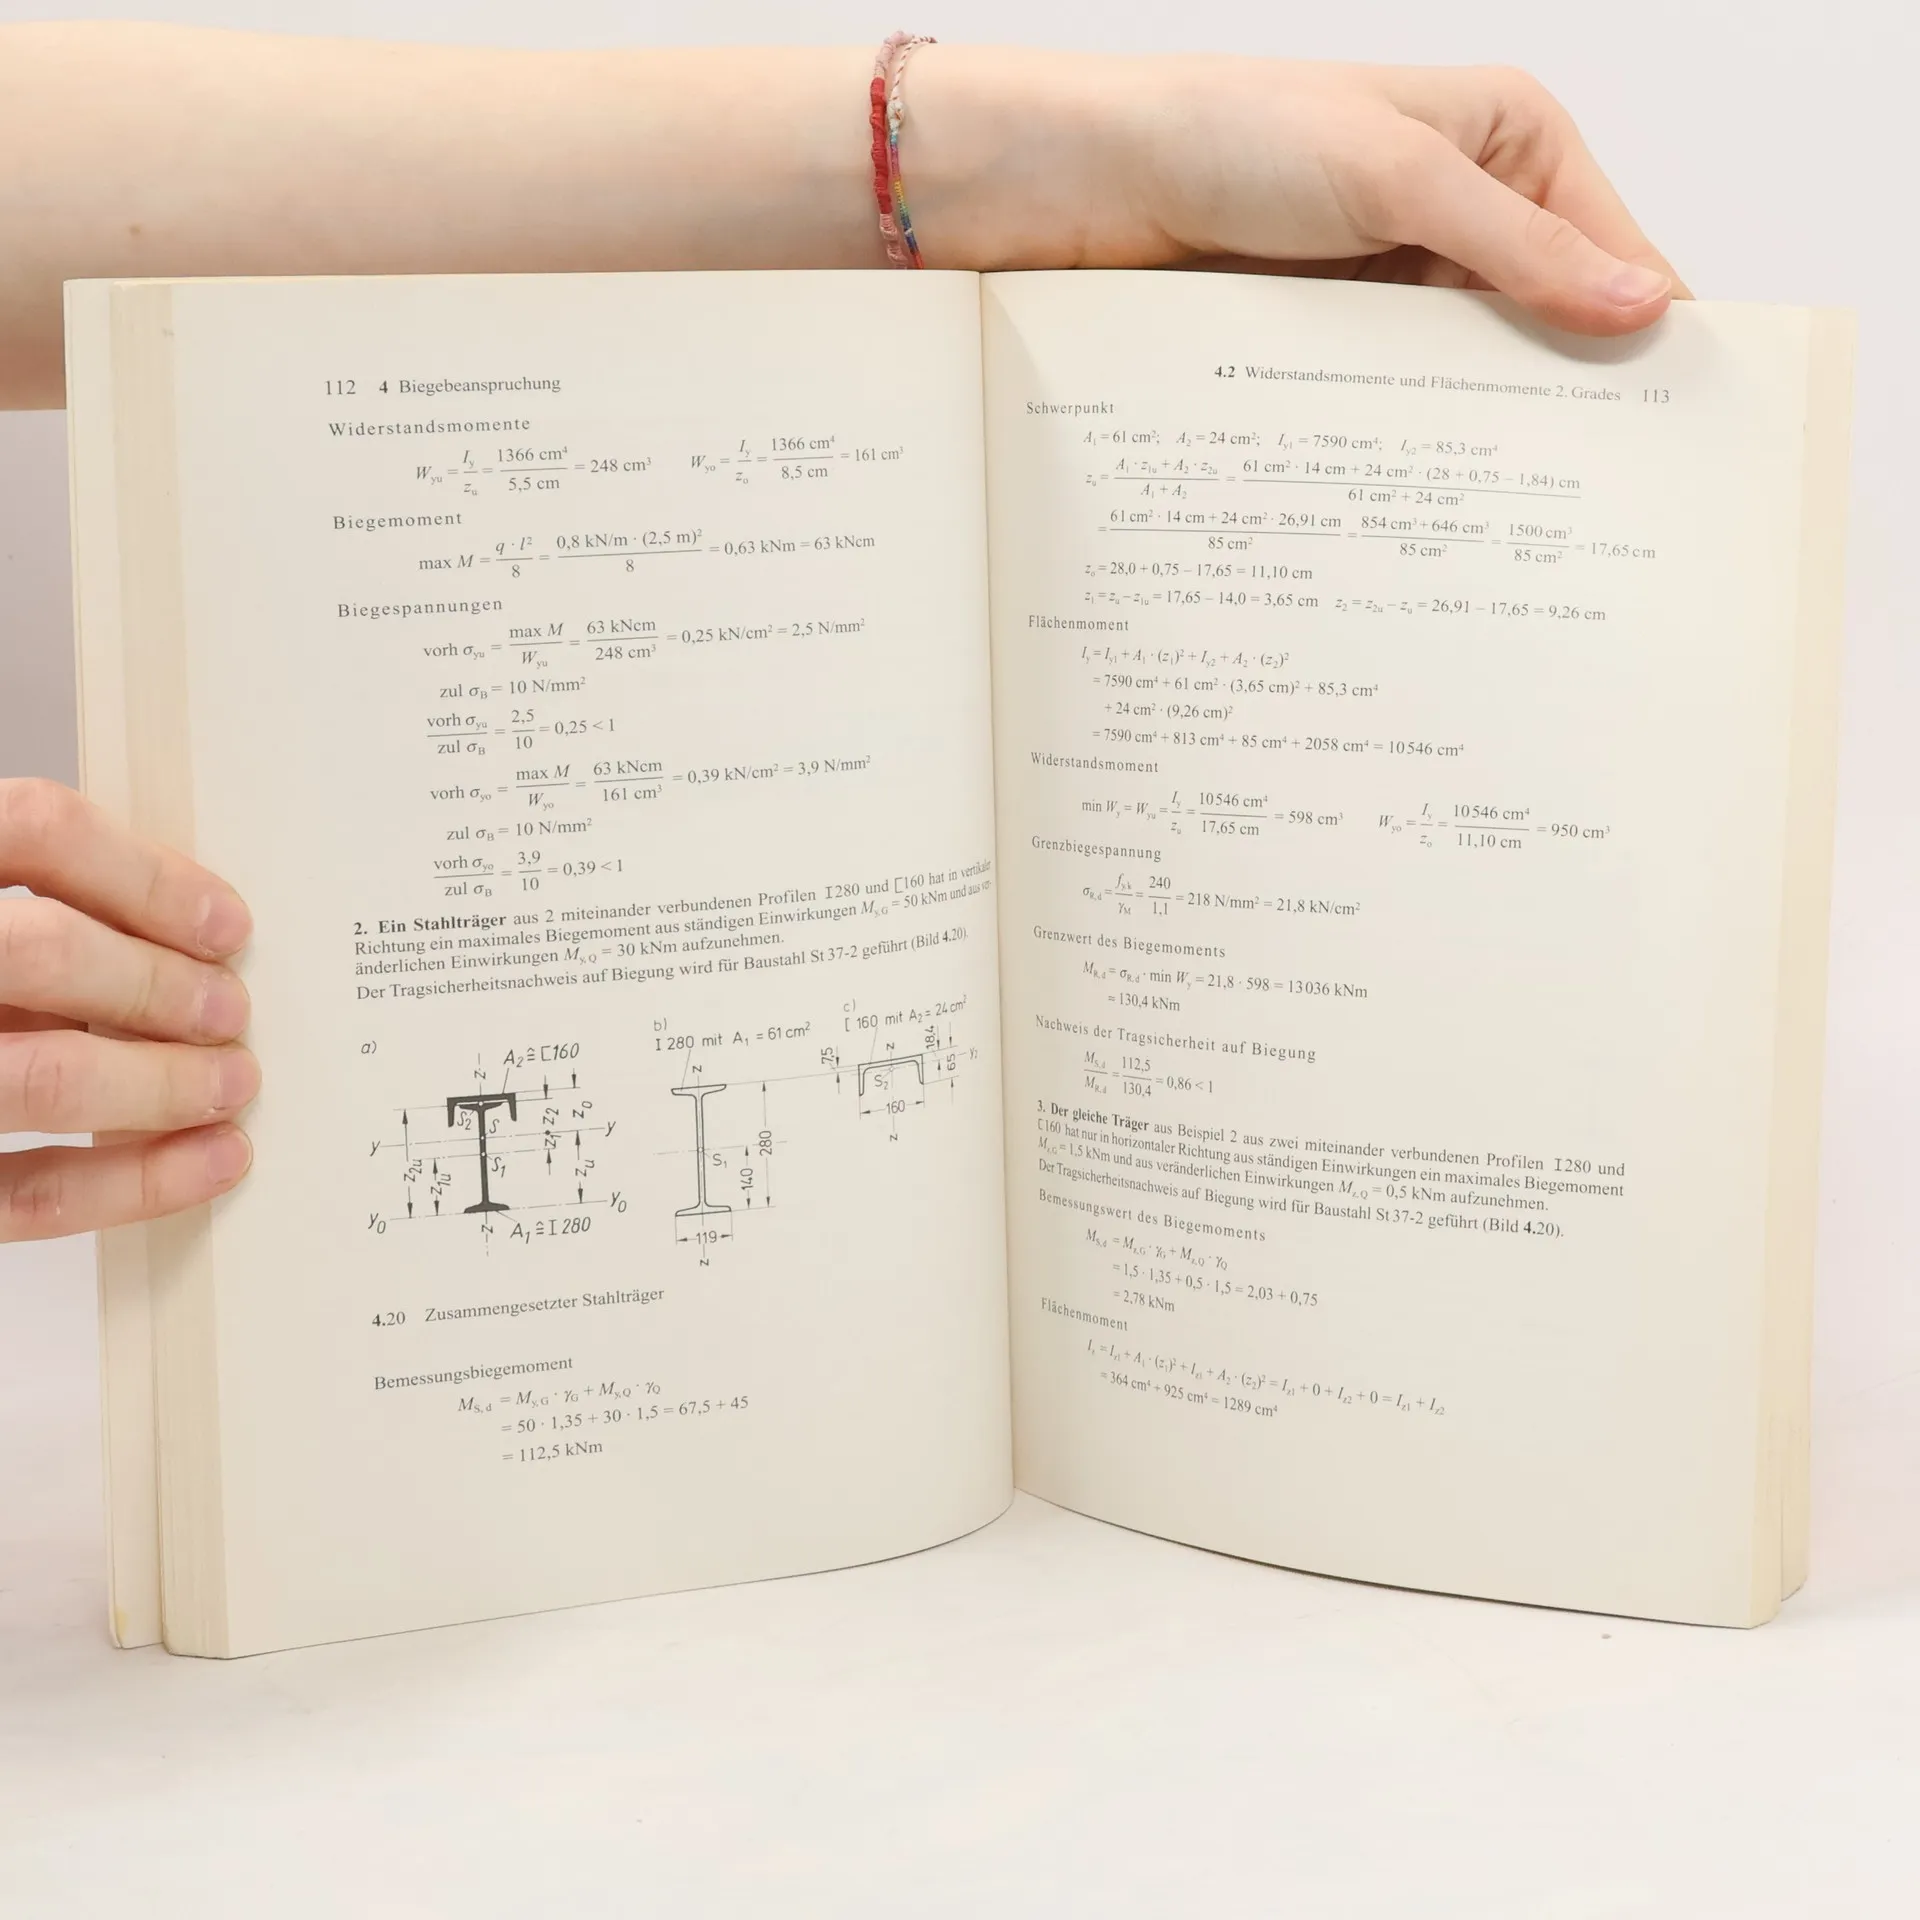 112 4 Biegebeanspruchung
Widerstandsmomente
W_yu = I_y / z_u = 1366 cm⁴ / 5,5 cm = 248 cm³ W_yo = I_y / z_o = 1366 cm⁴ / 8,5 cm = 161 cm³
Biegemoment
max M = q · l² / 8 = 0,8 kN/m · (2,5 m)² / 8 = 0,63 kNm = 63 kNcm
Biegespannungen
vorh σ_yu = max M / W_yu = 63 kNcm / 248 cm³ = 0,25 kN/cm² = 2,5 N/mm²
zul σ_B = 10 N/mm²
vorh σ_yu / zul σ_B = 2,5 / 10 = 0,25 < 1
vorh σ_yo = max M / W_yo = 63 kNcm / 161 cm³ = 0,39 kN/cm² = 3,9 N/mm²
zul σ_B = 10 N/mm²
vorh σ_yo / zul σ_B = 3,9 / 10 = 0,39 < 1
2. Ein Stahlträger aus 2 miteinander verbundenen Profilen I280 und [160 hat in vertikaler
Richtung ein maximales Biegemoment aus ständigen Einwirkungen M_y,G = 50 kNm und aus ver-
änderlichen Einwirkungen M_y,Q = 30 kNm aufzunehmen.
Der Tragsicherheitsnachweis auf Biegung wird für Baustahl St 37-2 geführt (Bild 4.20).
a)
A₂ ≙ [160
z
S₂
S
S₁
y
y
z₂
z_o
z₁
z_u
z_2u
z_1u
y_o
y_o
z
A₁ ≙ I 280
b)
I 280 mit A₁ = 61 cm²
z
S₁
140
280
119
z
c)
[ 160 mit A₂ = 24 cm²
7,5
z
18,4
65
y₂
S₂
160
z
4.20 Zusammengesetzter Stahlträger
Bemessungsbiegemoment
M_S,d = M_y,G · γ_G + M_y,Q · γ_Q
= 50 · 1,35 + 30 · 1,5 = 67,5 + 45
= 112,5 kNm
4.2 Widerstandsmomente und Flächenmomente 2. Grades 113
Schwerpunkt
A₁ = 61 cm²; A₂ = 24 cm²; I_y1 = 7590 cm⁴; I_y2 = 85,3 cm⁴
z_u = A₁ · z_1u + A₂ · z_2u / A₁ + A₂ = 61 cm² · 14 cm + 24 cm² · (28 + 0,75 − 1,84) cm / 61 cm² + 24 cm²
= 61 cm² · 14 cm + 24 cm² · 26,91 cm / 85 cm² = 854 cm³ + 646 cm³ / 85 cm² = 1500 cm³ / 85 cm² = 17,65 cm
z_o = 28,0 + 0,75 − 17,65 = 11,10 cm
z₁ = z_u − z_1u = 17,65 − 14,0 = 3,65 cm z₂ = z_2u − z_u = 26,91 − 17,65 = 9,26 cm
Flächenmoment
I_y = I_y1 + A₁ · (z₁)² + I_y2 + A₂ · (z₂)²
= 7590 cm⁴ + 61 cm² · (3,65 cm)² + 85,3 cm⁴
+ 24 cm² · (9,26 cm)²
= 7590 cm⁴ + 813 cm⁴ + 85 cm⁴ + 2058 cm⁴ = 10546 cm⁴
Widerstandsmoment
min W_y = W_yu = I_y / z_u = 10546 cm⁴ / 17,65 cm = 598 cm³ W_yo = I_y / z_o = 10546 cm⁴ / 11,10 cm = 950 cm³
Grenzbiegespannung
σ_R,d = f_y,k / γ_M = 240 / 1,1 = 218 N/mm² = 21,8 kN/cm²
Grenzwert des Biegemoments
M_R,d = σ_R,d · min W_y = 21,8 · 598 = 13036 kNm
= 130,4 kNm
Nachweis der Tragsicherheit auf Biegung
M_S,d / M_R,d = 112,5 / 130,4 = 0,86 < 1
3. Der gleiche Träger aus Beispiel 2 aus zwei miteinander verbundenen Profilen I280 und
[160 hat nur in horizontaler Richtung aus ständigen Einwirkungen ein maximales Biegemoment
M_z,G = 1,5 kNm und aus veränderlichen Einwirkungen M_z,Q = 0,5 kNm aufzunehmen.
Der Tragsicherheitsnachweis auf Biegung wird für Baustahl St 37-2 geführt (Bild 4.20).
Bemessungswert des Biegemoments
M_S,d = M_z,G · γ_G + M_z,Q · γ_Q
= 1,5 · 1,35 + 0,5 · 1,5 = 2,03 + 0,75
= 2,78 kNm
Flächenmoment
I_z = I_z1 + A₁ · (z₁)² + I_z1 + A₂ · (z₂)² = I_z1 + 0 + I_z2 + 0 = I_z1 + I_z2
= 364 cm⁴ + 925 cm⁴ = 1289 cm⁴